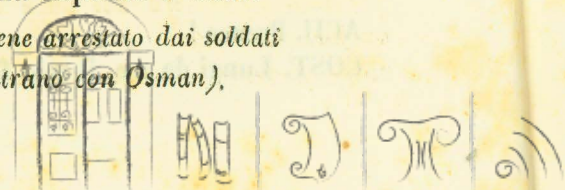 ene arrestato dai soldati
trano con Osman).